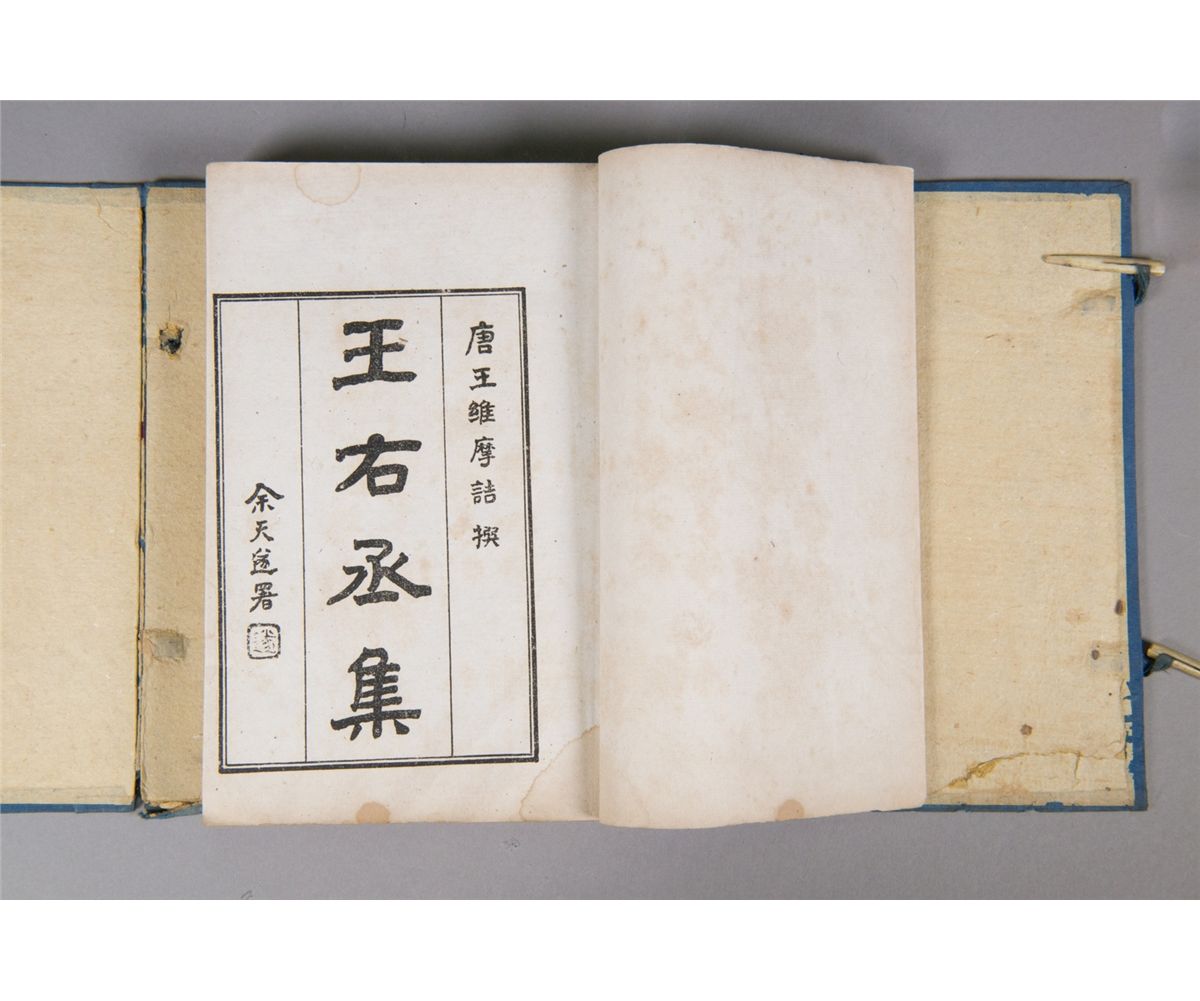 唐王維摩詰撰
王右丞集
余天遂署